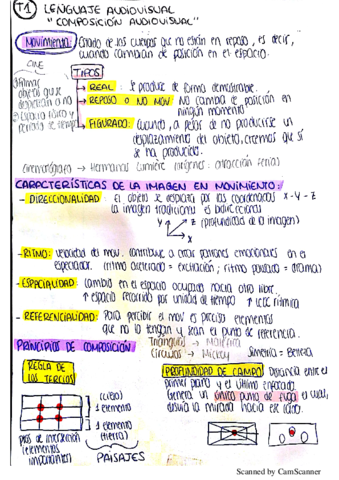 T1 LENGUAJE AUDIOVISUAL
"COMPOSICIÓN AUDIOVISUAL"
Movimiento: Estado de los cuerpos que no están en reposo, es decir,
cuando cambian de posición en el espacio.
CINE
TIPOS
filmar
objetos que se
desplazan o no
espacio físico y
periodo de tiempo
REAL: se produce de forma demostrable.
REPOSO O NO MOV: No cambia de posición en
ningún momento
FIGURADO: Cuando, a pesar de no producirse un
desplazamiento del objeto, creemos que sí
se ha producido.
cinematógrafo → Hermanos Lumière (orígenes: atracción ferias)
CARACTERÍSTICAS DE LA IMAGEN EN MOVIMIENTO:
- DIRECCIONALIDAD: El objeto se desplaza por las coordenadas X - Y - Z
la imagen tradicional es bidireccional
Y Z (profundidad de la imagen)
X
- RITMO: velocidad del mov. contribuye a crear patrones emocionales en el
espectador. (ritmo acelerado = excitación; ritmo pausado = drama)
- ESPACIALIDAD: cambio en el espacio ocupado hacia otro libre.
↑ espacio recorrido por unidad de tiempo ↑ veloc. rítmica
- REFERENCIALIDAD: Para percibir el mov. es preciso elementos
que no lo tengan y sean el punto de referencia.
PRINCIPIOS DE COMPOSICIÓN
Triángulos → Maléfica
Círculos → Mickey
Simetría = Belleza
REGLA DE
LOS TERCIOS
PROFUNDIDAD DE CAMPO Distancia entre el
primer plano y el último enfocado.
Genera un único punto de fuga el cual,
desvía la mirada hacia ese lado.
(cielo)
1 elemento
1 elemento
(tierra)
ptos de intersección
(elementos
importantes)
PAISAJES
Scanned by CamScanner